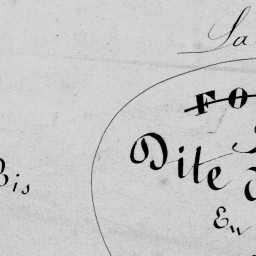 La
FO
Dite
Bis
En